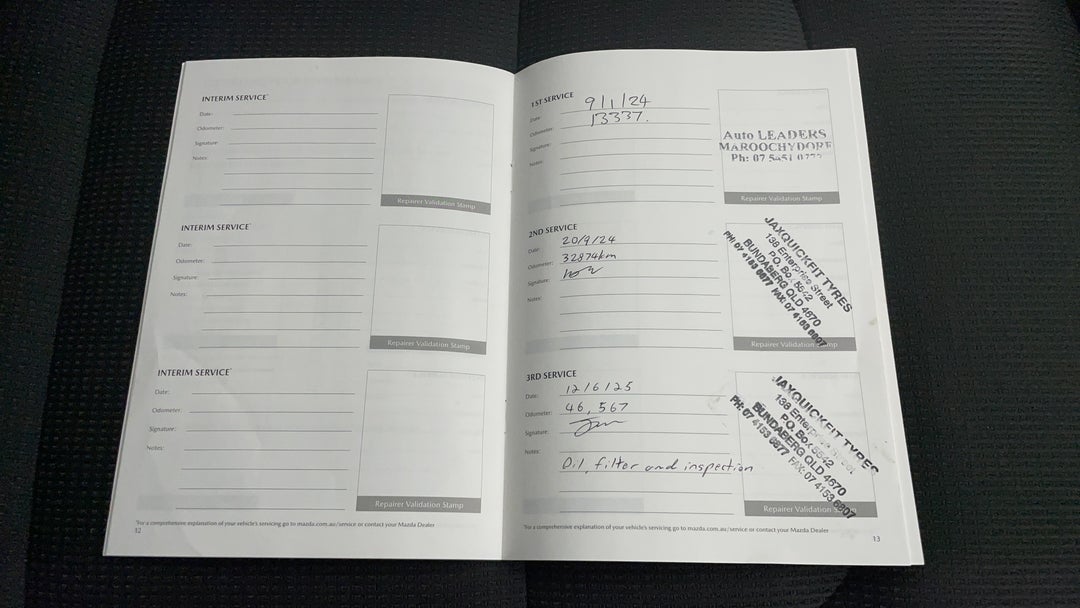 INTERIM SERVICE*
Date:
Odometer:
Signature:
Notes:
Repairer Validation Stamp
INTERIM SERVICE*
Date:
Odometer:
Signature:
Notes:
Repairer Validation Stamp
INTERIM SERVICE*
Date:
Odometer:
Signature:
Notes:
Repairer Validation Stamp
*For a comprehensive explanation of your vehicle's servicing go to mazda.com.au/service or contact your Mazda Dealer
12
1ST SERVICE
Date: 9/1/24
Odometer: 13337.
Signature:
Notes:
Auto LEADERS
MAROOCHYDORE
Ph: 07 5451
Repairer Validation Stamp
2ND SERVICE
Date: 20/9/24
Odometer: 32874km
Signature:
Notes:
JAXQUICKFIT TYRES
138 Enterprise Street
P.O. Box 5542
BUNDABERG QLD 4670
PH: 07 4153 6877 FAX: 07 4153 6907
Repairer Validation Stamp
3RD SERVICE
Date: 12/6/25
Odometer: 46,567
Signature:
Notes:
Oil, filter and inspection
JAXQUICKFIT TYRES
138 Enterprise Street
P.O. Box 5542
BUNDABERG QLD 4670
PH: 07 4153 6877 FAX: 07 4153 6907
Repairer Validation
*For a comprehensive explanation of your vehicle's servicing go to mazda.com.au/service or contact your Mazda Dealer
13